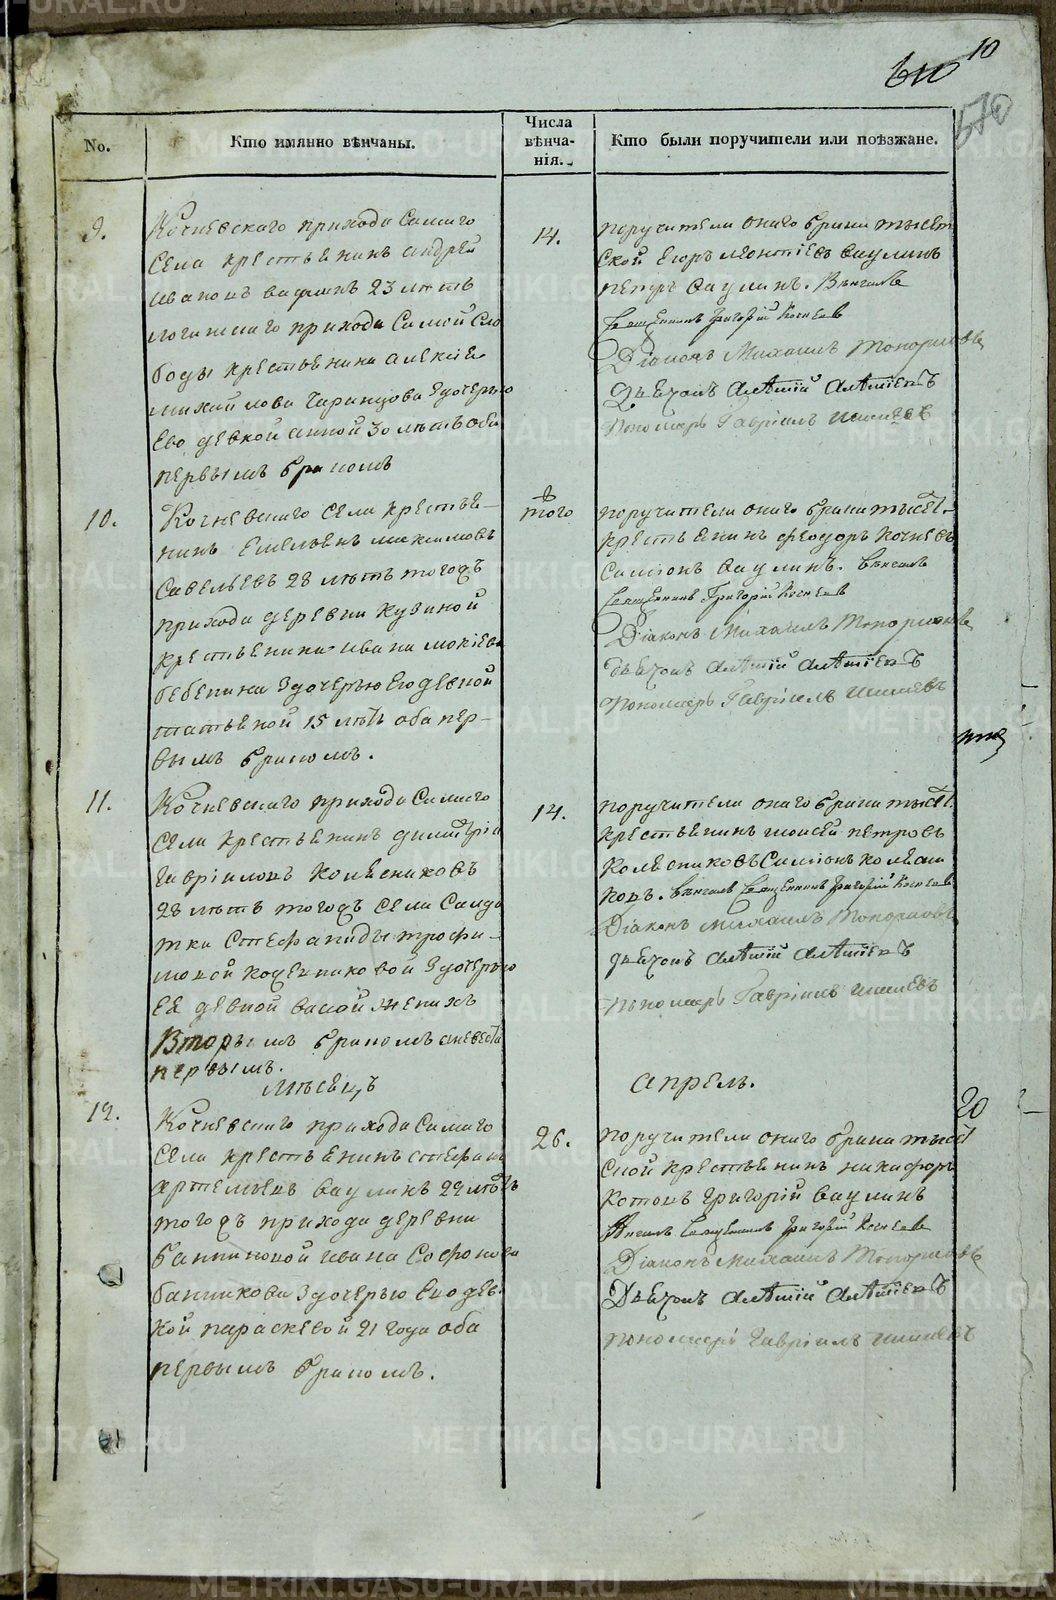 10
570
No.
Кто имянно вѣнчаны.
Числа
вѣнча-
нія.
Кто были поручители или поѣзжане.
9.
Кочневскаго прихода самаго
села крестьенинъ андрей
ивановъ ваулинъ 23 лѣтъ
прихода самой сло
боды крестьенина алексіе
михайлова здочерью
ево девкой анной 30 лѣтъ оба
первымъ бракомъ
14.
поручители онаго брака тысет
ской егоръ леонтіевъ ваулинъ
петръ ваулинъ. Вѣнчалъ
Священникъ Григорій Кочневъ
Діаконъ Михаилъ Топорковъ
Дьячокъ
Пономарь Гавріилъ
10.
Кочневскаго села крестье-
нинъ Емельенъ максимовъ
Савельевъ 28 лѣтъ тогожъ
прихода деревни кузиной
крестьенина ивана мокіева
бебенина здочерью его девкой
татьеной 15 лѣтъ оба пер-
вымъ бракомъ.
того
поручители онаго брака тысет.
крестьенинъ феодоръ кочневъ
симіонъ ваулинъ. вѣнчалъ
Священникъ Григорій Кочневъ
Діаконъ Михаилъ Топорковъ
дьячокъ
Пономарь Гавріилъ
11.
Кочневскаго прихода самаго
села крестьенинъ димитрій
гавріловъ колесниковъ
28 лѣтъ тогожъ села салда
тки стефаниды трофи-
мовой здочерью
ея девкой васой женихъ
вторымъ бракомъ аневеста
первымъ.
14.
поручители онаго брака тысет.
крестьенинъ моисей петровъ
колесниковъ симіонъ колесни
ковъ. вѣнчалъ Священникъ Григорій Кочневъ
Діаконъ михаилъ Топорковъ
дьячокъ
пономарь Гавріилъ
мѣсецъ
апрель.
12.
Кочневскаго прихода самаго
села крестьенинъ стефанъ
артемьевъ ваулинъ 22 лѣтъ
тогожъ прихода деревни
банниковой ивана софонова
банникова здочерью ево дев-
кой параскевой 21 года оба
первымъ бракомъ.
26.
поручители онаго брака тысет
ской крестьенинъ никифоръ
котовъ григорій ваулинъ
Вѣнчалъ Священникъ Григорій Кочневъ
Діаконъ Михаилъ Топорковъ
Дьячокъ
пономарь Гавріилъ
20
METRIKI.GASO-URAL.RU